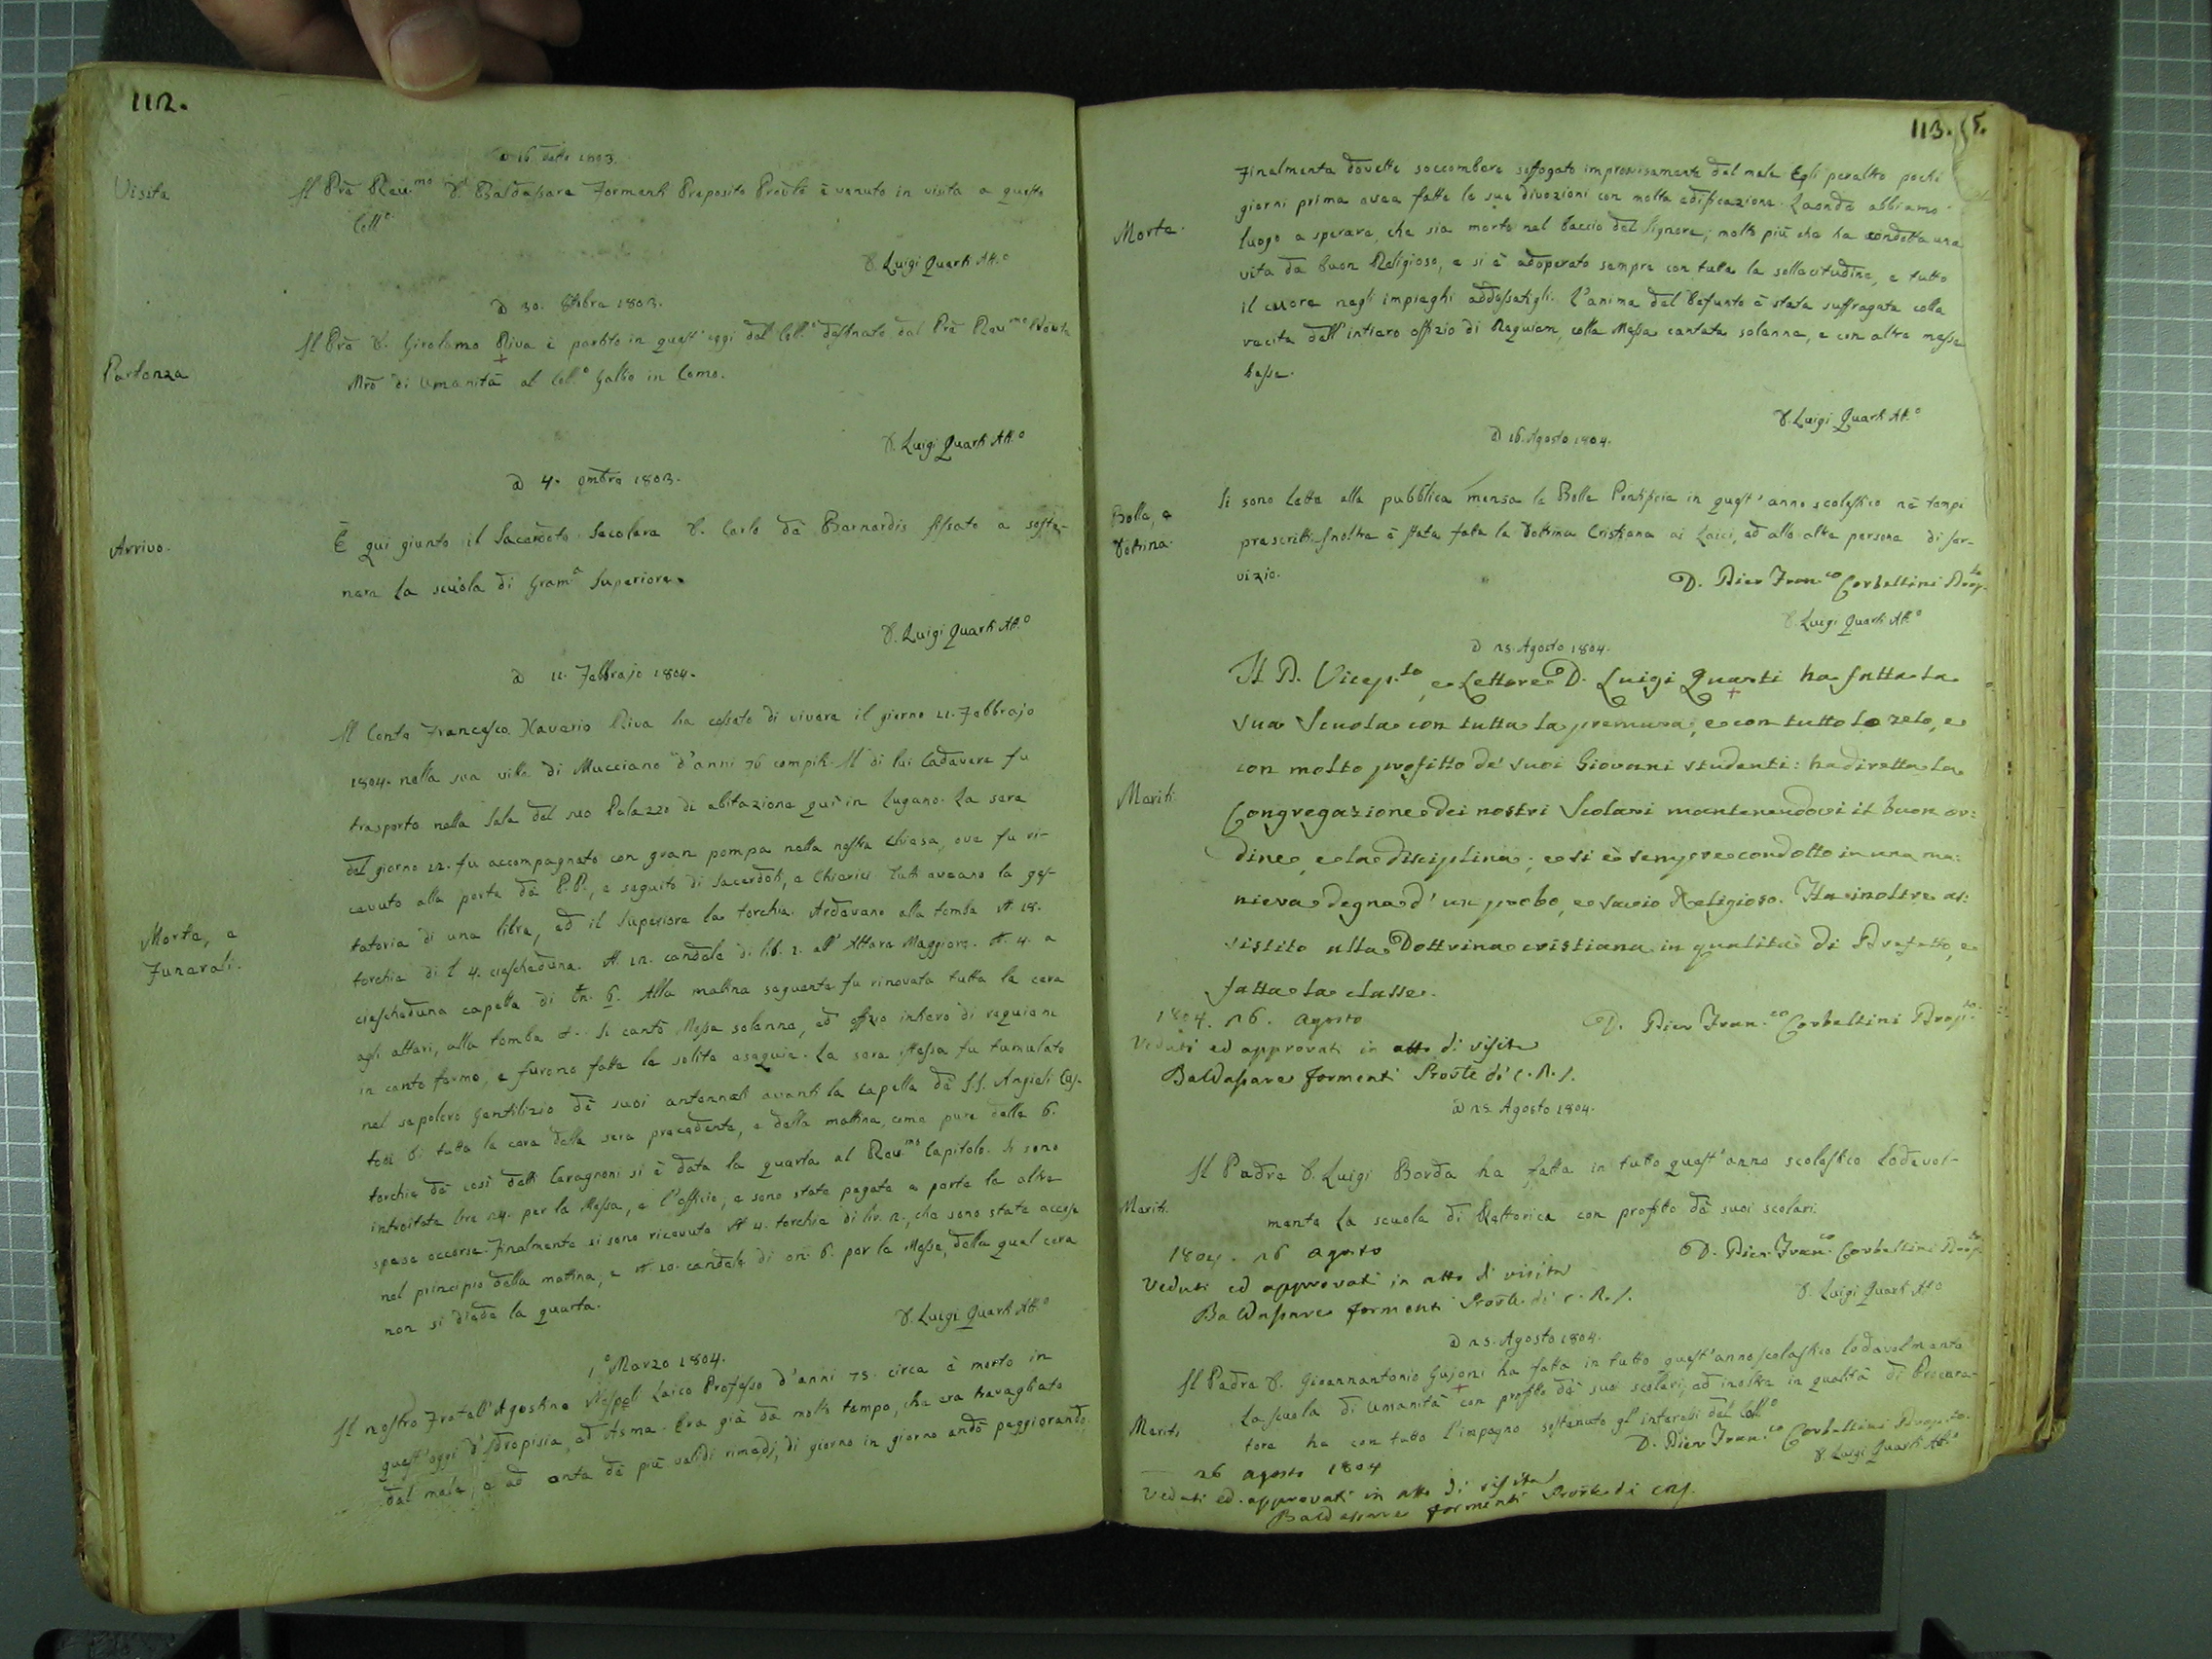 112.
a 16. detto 1803.
Visita
Il Prē Revmo D. Baldassare Formenti Preposito Provle è venuto in visita a questo
Collo
D. Luigi Quarti Att.o
a 30. 8tobre 1803.
Partenza
Il Prē D. Girolamo Riva è partito in quest'oggi dal Coll.o destinato dal Prē Revmo Provle
Mrō di Umanità al Coll.o Gallio in Como.
D. Luigi Quarti Att.o
a 4. 9mbre 1803.
Arrivo.
È qui giunto il Sacerdote Secolare D. Carlo de Bernardis fissato a soste-
nere la scuola di Gram.a Superiore.
D. Luigi Quarti Att.o
a 11. Febbrajo 1804.
Morte, e
Funerali.
Il Conte Francesco Xaverio Riva ha cessato di vivere il giorno 11. Febbrajo
1804. nella sua villa di Mucciano d'anni 76 compiti. Il di lui Cadavere fu
trasporto nella Sala del suo Palazzo di abitazione qui in Lugano. La sera
del giorno 12. fu accompagnato con gran pompa nella nostra Chiesa, ove fu ri-
cevuto alla porta dā P.P., e seguito di Sacerdoti, e Chierici tutti aveano la ges-
tatoria di una libra, ed il Superiore la torchia. Ardevano alla tomba N. 18.
torchie di l 4. ciascheduna. N. 12. candele di lib. 1. all'Altare Maggiore. N. 4. a
ciascheduna capella di ōn. 6. Alla mattina seguente fu rinovata tutta la cera
agli altari, alla tomba &. Si cantò Messa solenne, ed offizio intiero di requiem
in canto fermo, e furono fatte le solite esequie. La sera istessa fu tumulato
nel sepolcro Gentilizio de' suoi antennati avanti la capella de' SS. Angioli Cus-
todi. Di tutta la cera della sera precedente, e della mattina, come pure delle 6.
torchie de' così detti Ceragnoni si è data la quarta al Revmo Capitolo. Si sono
introitate lire 24. per la Messa, e l'officio, e sono state pagate a parte le altre
spese occorse. Finalmente si sono ricevute N 4. torchie di liv. 2., che sono state accese
nel principio della mattina, e N. 20. candele di on. 6. per le Messe, della qual cera
non si diede la quarta.
D. Luigi Quarti Att.o
1.o Marzo 1804.
Il nostro Fratell'Agostino Nespoli Laico Professo d'anni 75. circa è morto in
quest'oggi d'Idropisia, ed Asma. Era già da molto tempo, che era travagliato
dal male, e ad onta de' più validi rimedj, di giorno in giorno andò peggiorando.
113.
Morte.
Finalmente dovette soccombere soffogato improvvisamente dal male. Egli peraltro pochi
giorni prima avea fatte le sue divozioni con molta edificazione. Laonde abbiamo
luogo a sperare, che sia morto nel baccio del Signore; molto più che ha condotta una
vita da buon Religioso, e si è adoperato sempre con tutta la sollecitudine, e tutto
il cuore negli impieghi addossatigli. L'anima del Defunto è stata suffragata colla
recita dell'intiero offizio di Requiem, colla Messa cantata solenne, e con altre messe
basse.
D. Luigi Quarti Att.o
a 16. Agosto 1804.
Bolle, e
Dottrina.
Si sono lette alla pubblica mensa le Bolle Pontificie in quest'anno scolastico ne' tempi
prescritti. Inoltre è stata fatta la Dottrina Cristiana ai Laici, ed alle altre persone di ser-
vizio.
D. Pier Fran.co Corbellini Prop.to
D. Luigi Quarti Att.o
a 25. Agosto 1804.
Meriti
Il P. Vicep.to, e Lettore D. Luigi Quarti ha fatta la
sua Scuola con tutta la premura, e con tutto lo zelo, e
con molto profitto de' suoi Giovani studenti: ha diretta la
Congregazione dei nostri Scolari mantenendovi il buon or:
dine, e la disciplina; e si è sempre condotto in una ma:
niera degna d'un probo, e savio Religioso. Ha inoltre as:
sistito alla Dottrina cristiana in qualità di Prefetto, e
fatta la classe.
D. Pier Fran.co Corbellini Prop.to
1804. 26. agosto
Veduti ed approvati in atto di visita
Baldassare Formenti Provle di C.R.S.
a 25. Agosto 1804.
Meriti.
Il Padre D. Luigi Borda ha fatta in tutto quest'anno scolastico lodevol-
mente la scuola di Rettorica con profitto de' suoi scolari.
D. Pier Fran.co Corbellini Prop.to
1804. 26 agosto
Veduti ed approvati in atto di visita
Baldassare Formenti Provle di C.R.S.
D. Luigi Quarti Att.o
a 25. Agosto 1804.
Meriti
Il Padre D. Gioannantonio Gujoni ha fatta in tutto quest'anno scolastico lodevolmente
la scuola di Umanità con profitto de' suoi scolari, ed inoltre in qualità di Procura-
tore ha con tutto l'impegno sostenuto gl'interessi del Coll.o
D. Pier Fran.co Corbellini Prop.to
D. Luigi Quarti Att.o
26 agosto 1804
Veduti ed approvati in atto di visita
Baldassare Formenti Provle di CRS.